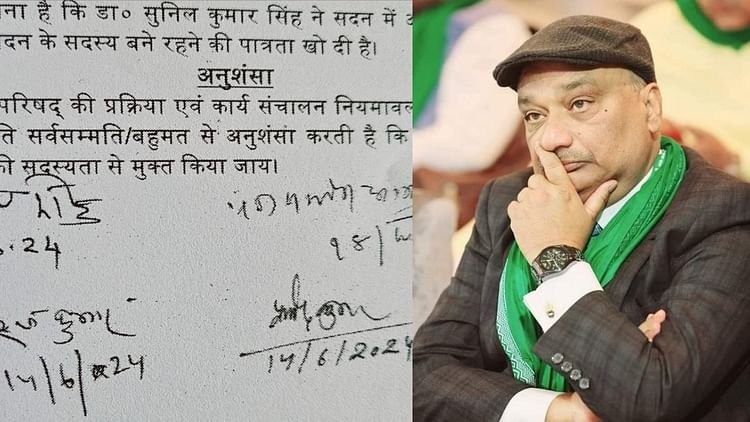 ना है कि डा० सुनिल कुमार सिंह ने सदन में
दन के सदस्य बने रहने की पात्रता खो दी है।
अनुशंसा
परिषद् की प्रक्रिया एवं कार्य संचालन नियमावल
ति सर्वसम्मति/बहुमत से अनुशंसा करती है कि
ी सदस्यता से मुक्त किया जाय।
.24
कुमार
14/6/24
14/6/2024